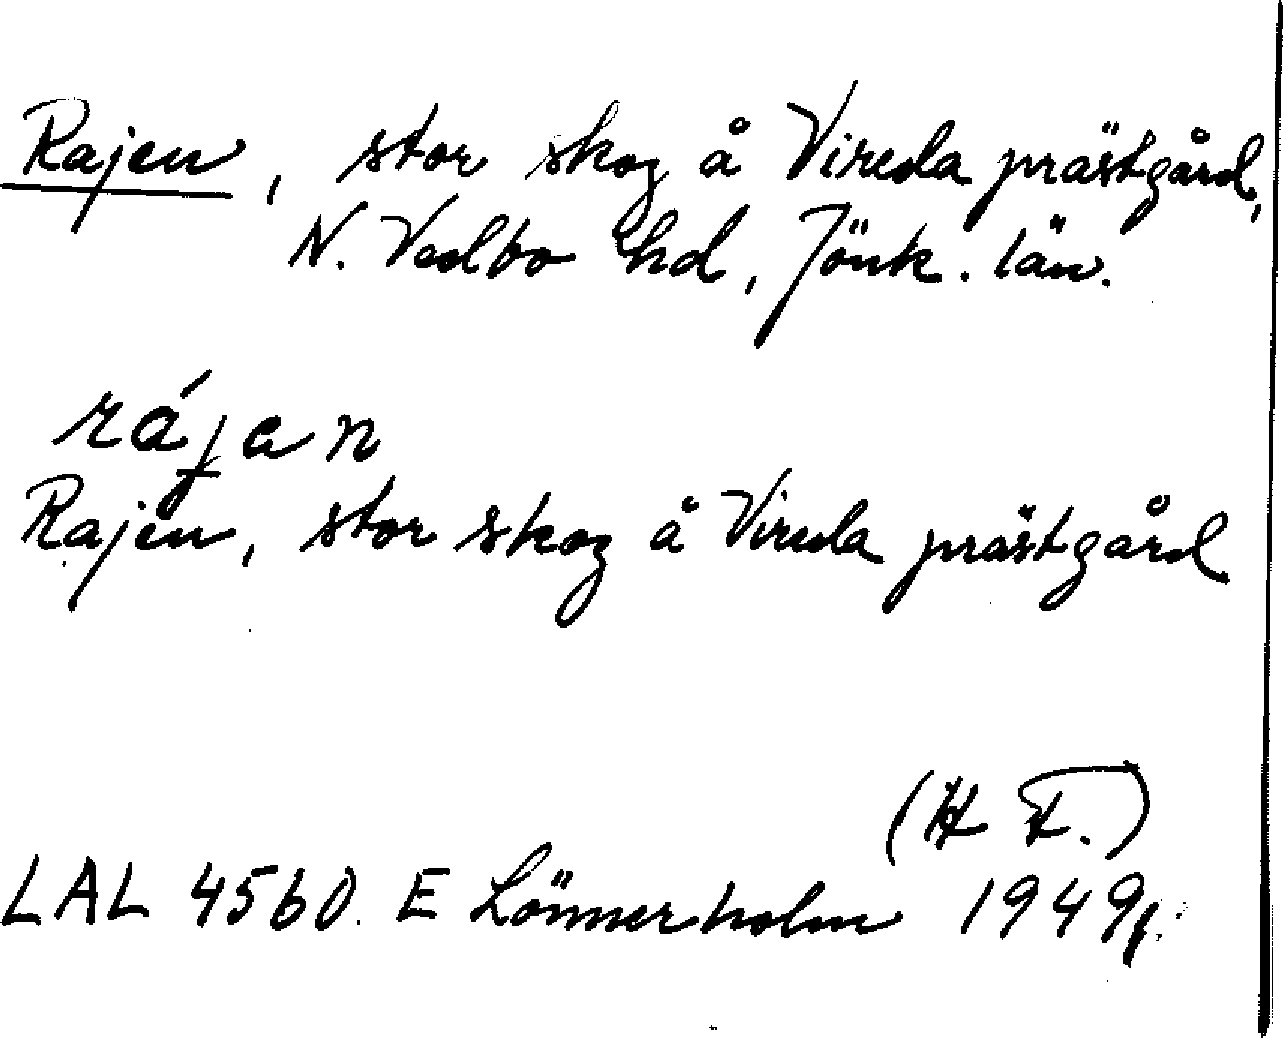 Rajen, stor skog å Vireda prästgård,
N. Vedbo hd, Jönk. län.
rájan
Rajen, stor skog å Vireda prästgård
(H F.)
LAL 4560. E Lönnerholm 1949